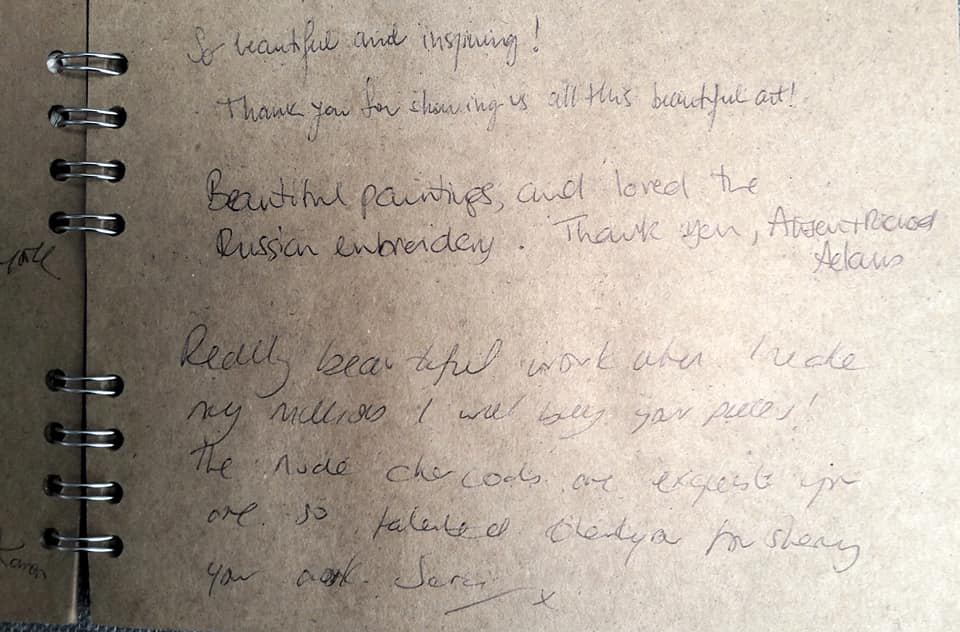 So beautiful and inspiring!
Thank you for showing us all this beautiful art!
Beautiful paintings, and loved the
Russian embroidery. Thank you,
Adams
Really beautiful work when I make
my millions I will buy your pieces!
The nude charcoals are exquisite you
are so talented thankyou for sharing
your work. x
Karen